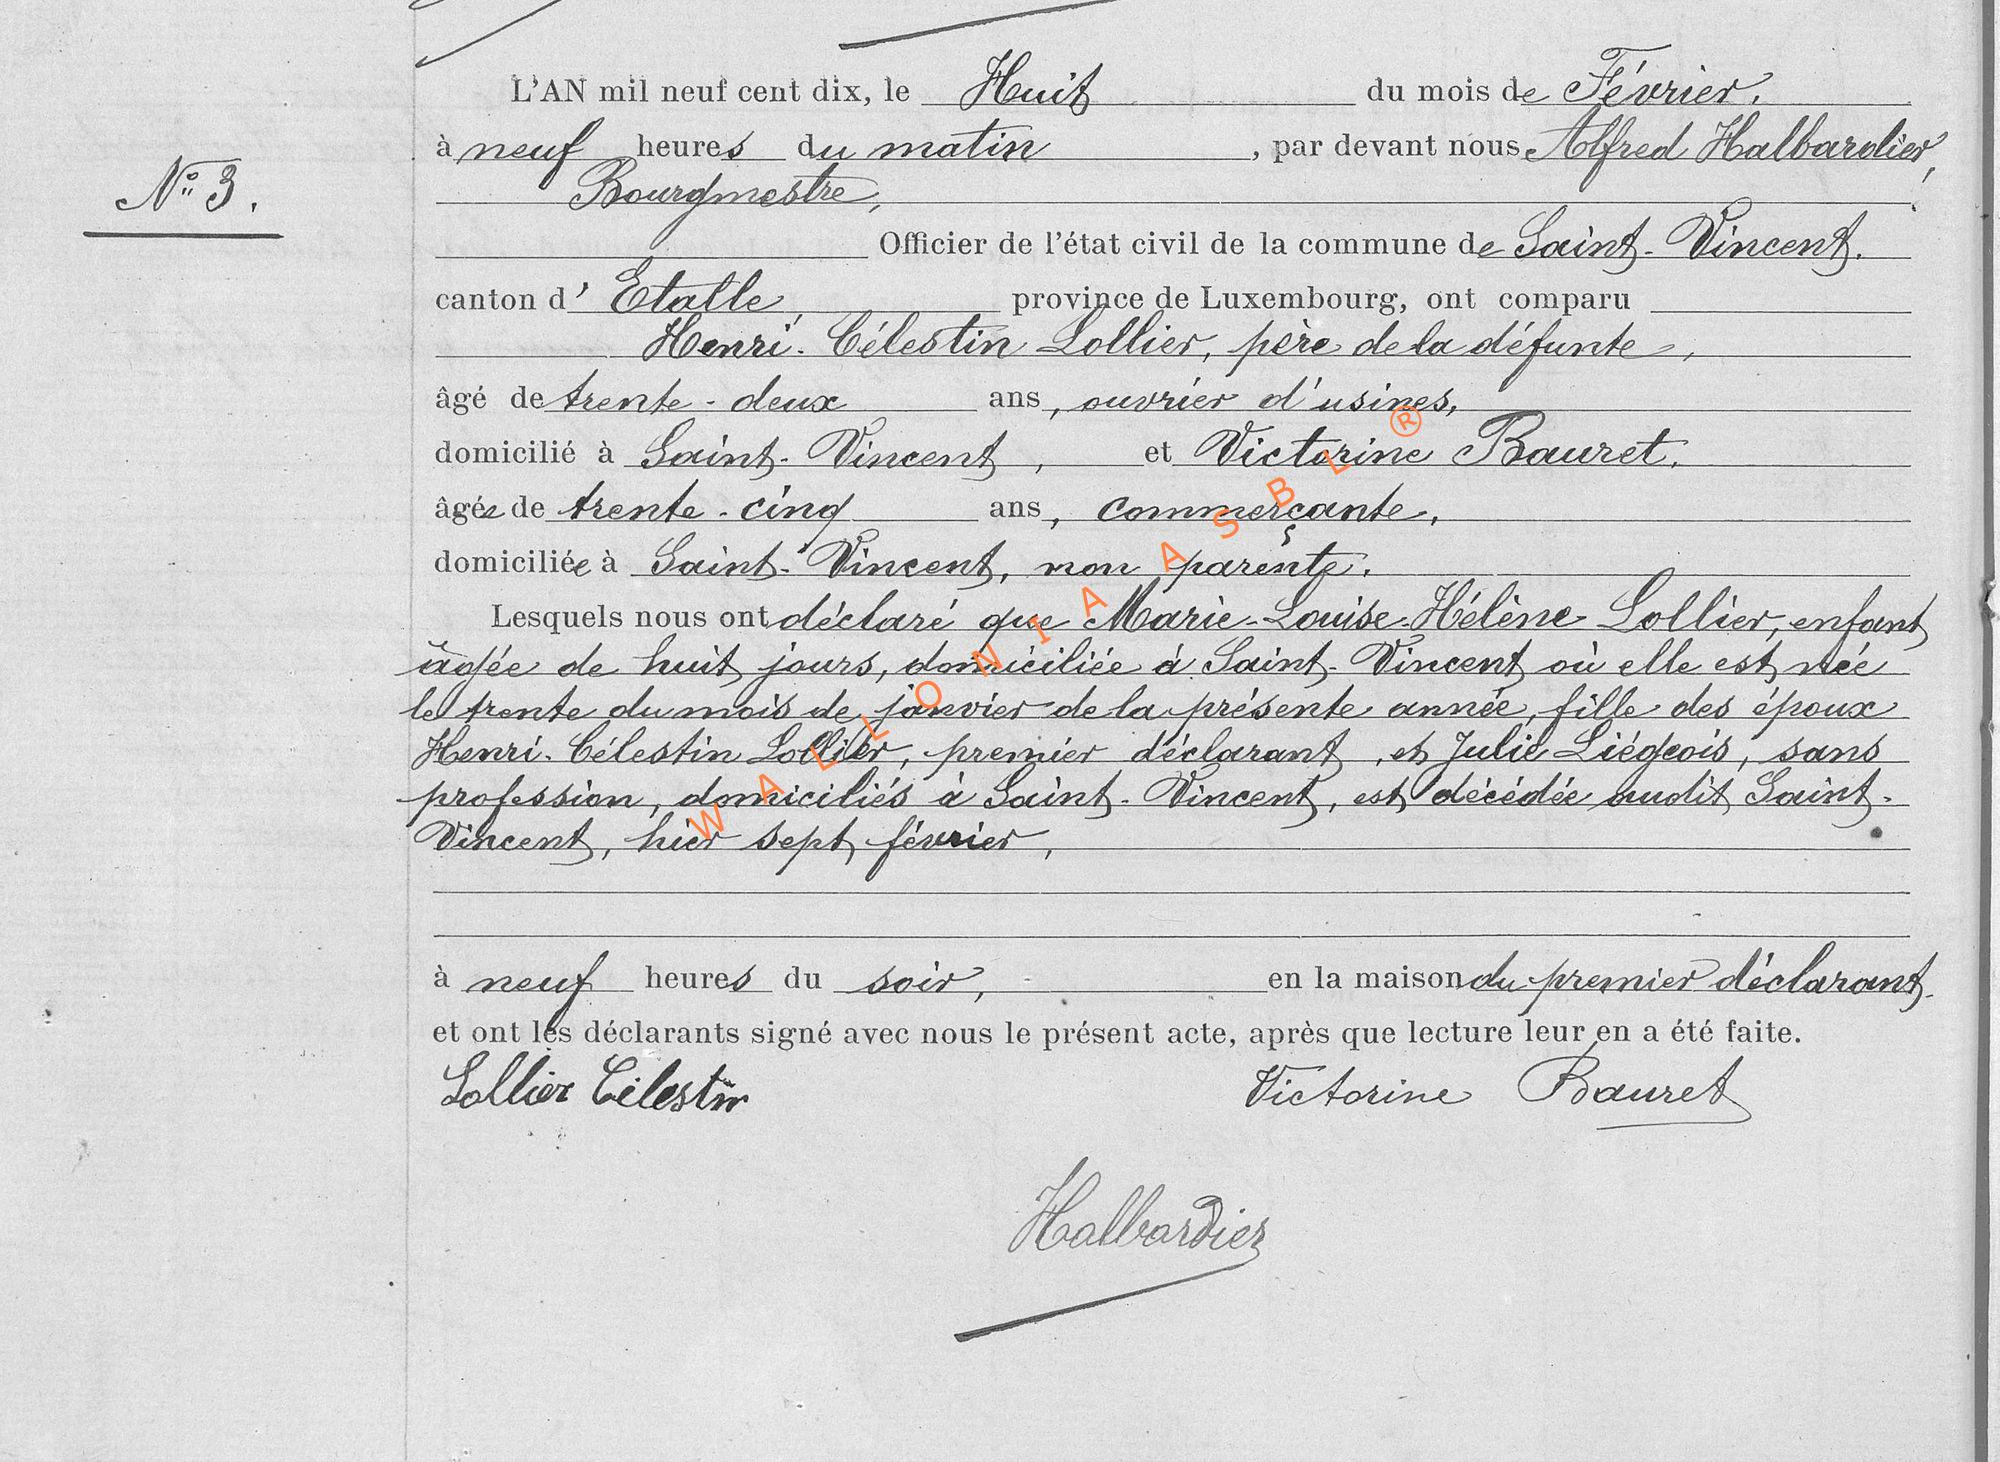 L'AN mil neuf cent dix, le Huit du mois de Février.
à neuf heures du matin, par devant nous Alfred Halbardier,
N° 3.
Bourgmestre,
Officier de l'état civil de la commune de Saint-Vincent.
canton d' Etalle, province de Luxembourg, ont comparu
Henri-Célestin Lollier, père de la défunte,
âgé de trente-deux ans, ouvrier d'usines,
domicilié à Saint-Vincent, et Victorine Bauret,
âgée de trente-cinq ans, commerçante,
domiciliée à Saint-Vincent, non parente.
Lesquels nous ont déclaré que Marie-Louise-Hélène Lollier, enfant
âgée de huit jours, domiciliée à Saint-Vincent où elle est née
le trente du mois de janvier de la présente année, fille des époux
Henri-Célestin Lollier, premier déclarant, et Julie Liégeois, sans
profession, domiciliés à Saint-Vincent, est décédée audit Saint-
Vincent, hier sept février,
à neuf heures du soir, en la maison du premier déclarant.
et ont les déclarants signé avec nous le présent acte, après que lecture leur en a été faite.
Lollier Célestin Victorine Bauret
Halbardier
WALLONIA ASBL ®